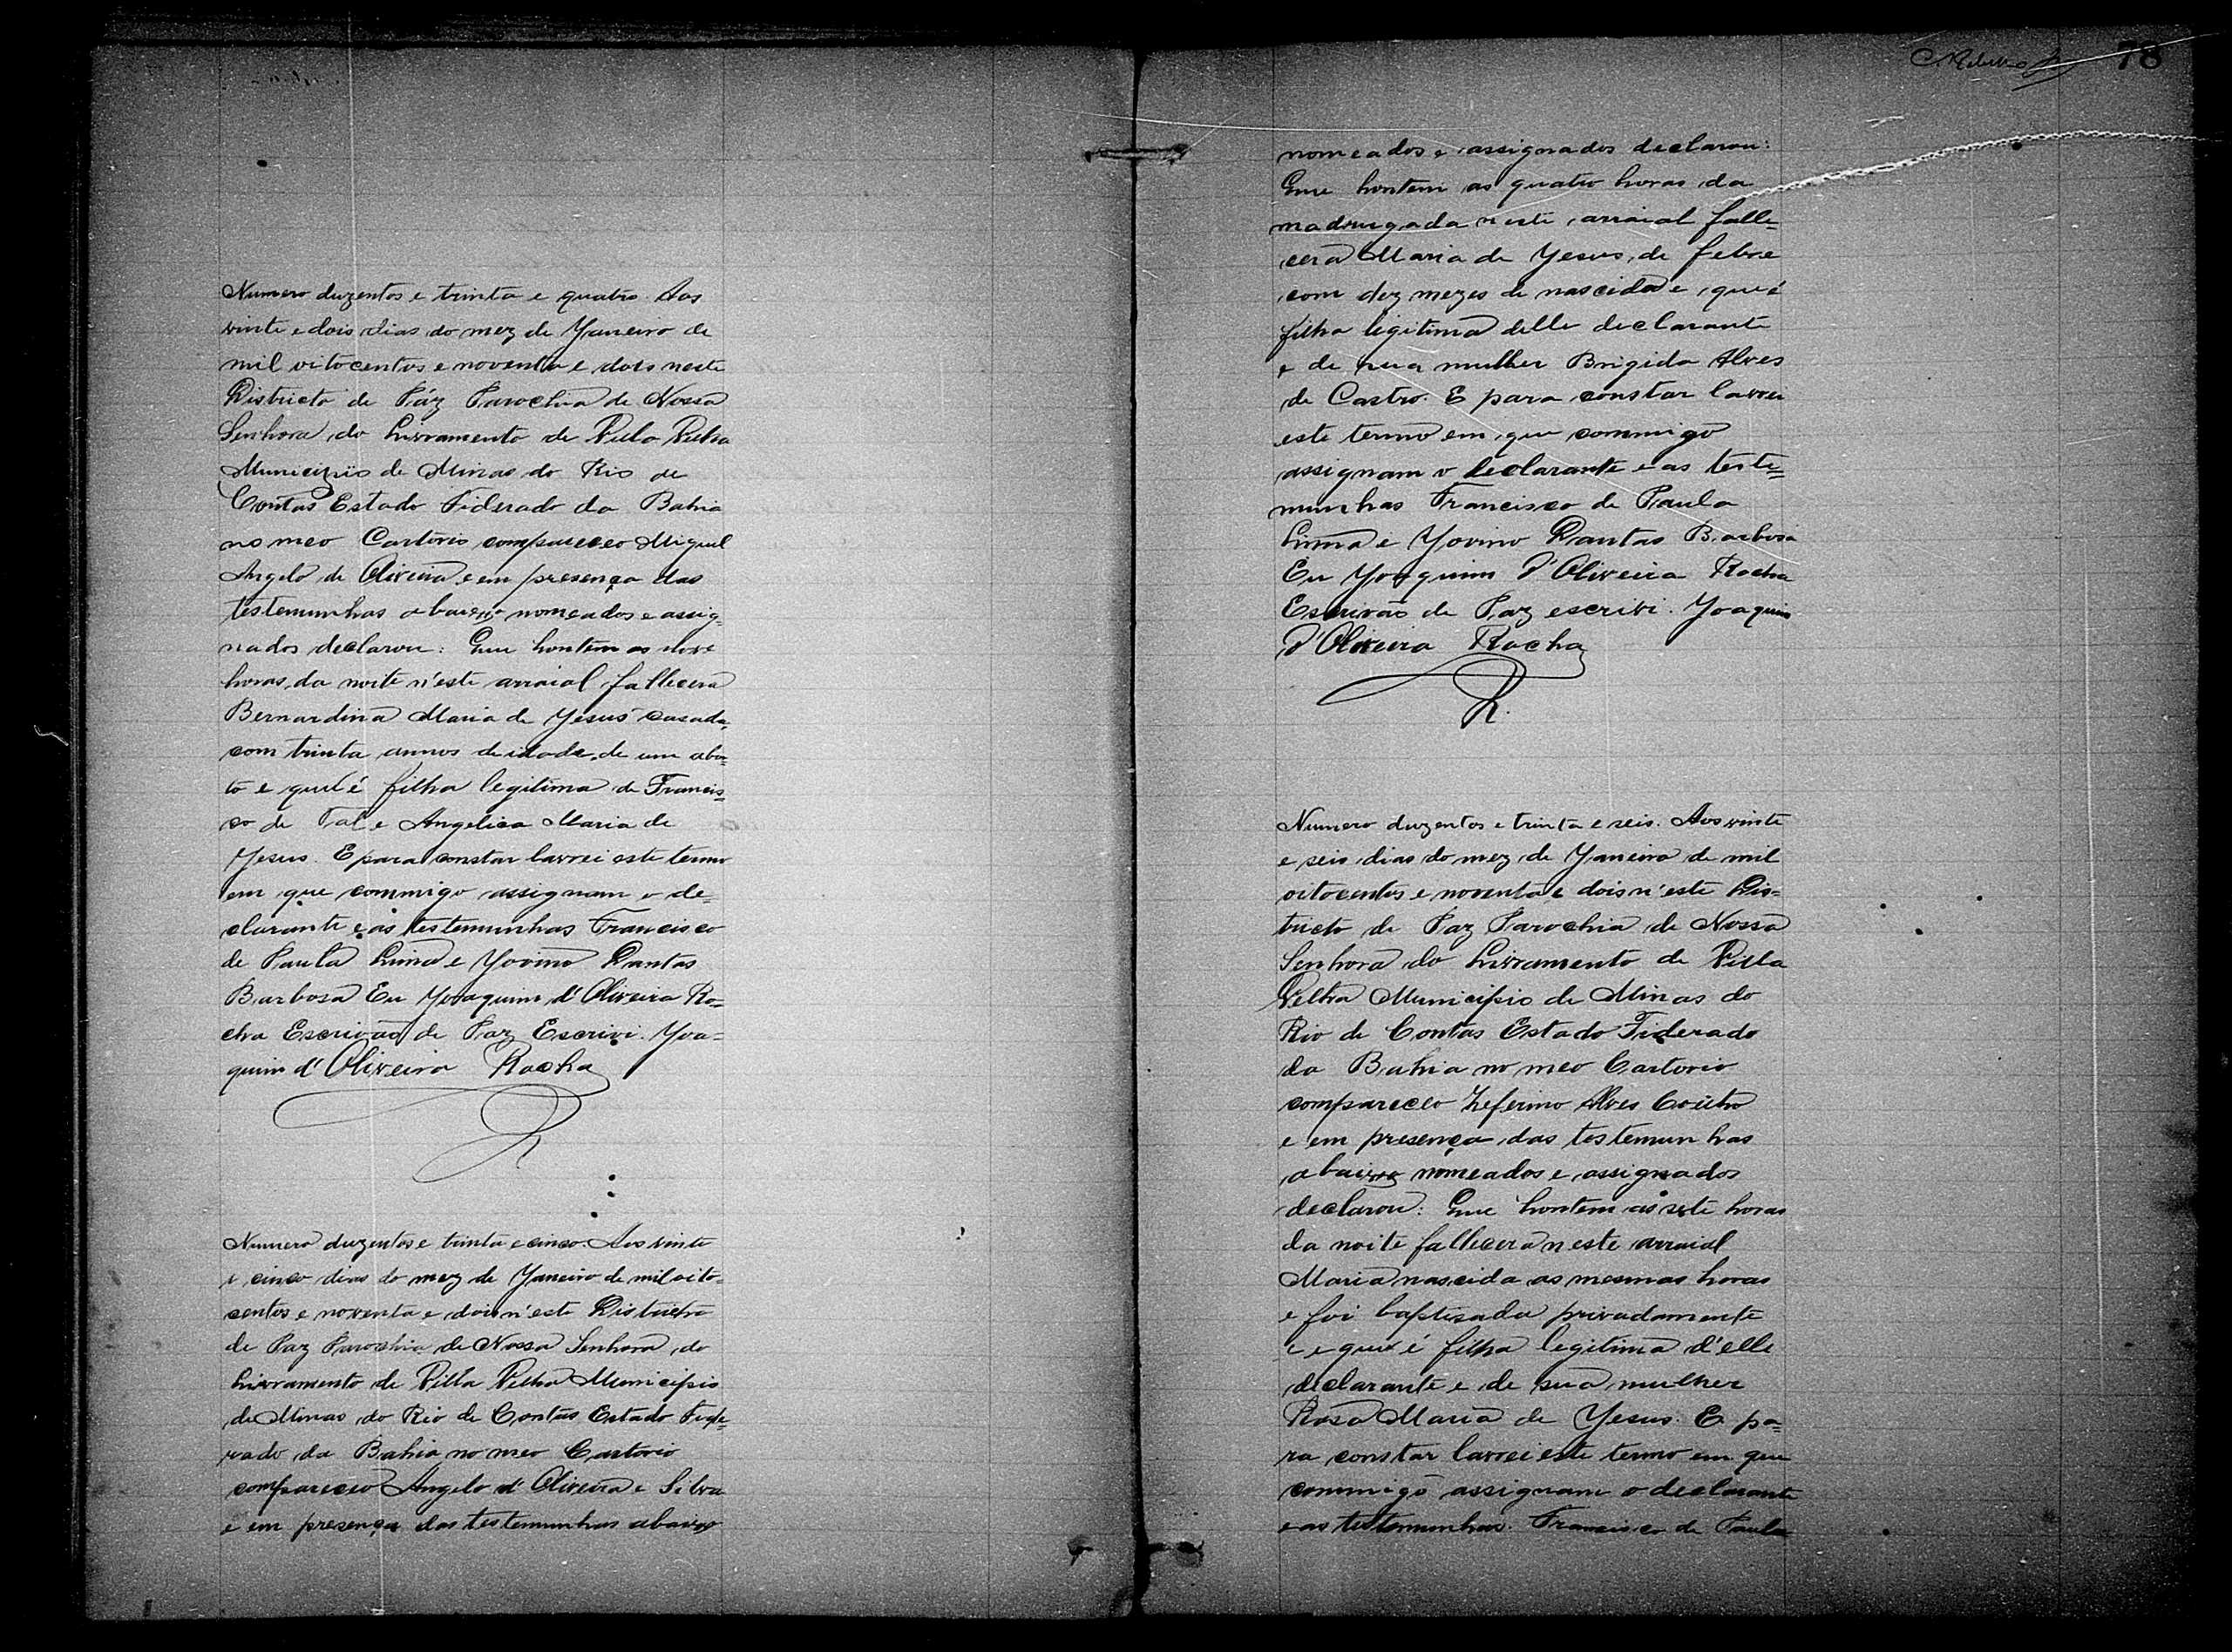 Numero duzentos e trinta e quatro. Aos
vinte e dois dias do mez de Janeiro de
mil oitocentos e noventa e dois neste
Districto de Páz Parochia de Nossa
Senhora do Livramento de Villa Velha
Municipio de Minas do Rio de
Contas Estado Federado da Bahia
no meo Cartorio compareceo Miguel
Angelo de Oliveira e em presença das
testemunhas abaixo nomeados e assig=
nados declarou: Que hontem as nove
horas da noite n'este arraial fallecera
Bernardina Maria de Jesus casada,
com trinta annos de idade, de um abor=
to e que é filha legitima de Francis=
co de Tal e Angelica Maria de
Jesus. E para constar lavrei este termo
em que commigo assignam o de=
clarante e as testemunhas Francisco
de Paula Lima e Jovino Dantas
Barbosa Eu Joaquim d'Oliveira Ro=
cha Escrivão de Paz Escrivi. Joa=
quim d'Oliveira Rocha
R
Numero duzentos e trinta e cinco. Aos vinte
e cinco dias do mez de Janeiro de mil oito=
centos e noventa e dois n'este Districto
de Paz Parochia de Nossa Senhora do
Livramento de Villa Velha Municipio
de Minas do Rio de Contas Estado Fede=
rado da Bahia no meo Cartorio
compareceo Angelo d'Oliveira e Silva
e em presença das testemunhas abaixo
78
nomeados e assignados declarou:
Que hontem as quatro horas da
madrugada n'este arraial falle=
cera Maria de Jesus, de febre
com dez mezes de nascida e que é
filha legitima delle declarante
e de sua mulher Brigida Alves
de Castro. E para constar lavrei
este termo em que commigo
assignam o declarante e as teste=
munhas Francisco de Paula
Lima e Jovino Dantas Barbosa
Eu Joaquim d'Oliveira Rocha
Escrivão de Paz escrivi. Joaquim
d'Oliveira Rocha
R.
Numero duzentos e trinta e seis. Aos vinte
e seis dias do mez de Janeiro de mil
oitocentos e noventa e dois n'este Dis=
tricto de Paz Parochia de Nossa
Senhora do Livramento de Villa
Velha Municipio de Minas do
Rio de Contas Estado Federado
da Bahia no meo Cartorio
compareceo Zeferino Alves
e em presença das testemunhas
abaixo nomeados e assignados
declarou: Que hontem as sete horas
da noite fallecera n'este arraial
Maria nascida as mesmas horas
e foi baptisada privadamente
e que é filha legitima d'elle
declarante e de sua mulher
Rosa Maria de Jesus. E pa=
ra constar lavrei este termo em que
commigo assignam o declarante
e as testemunhas. Francisco de Paula